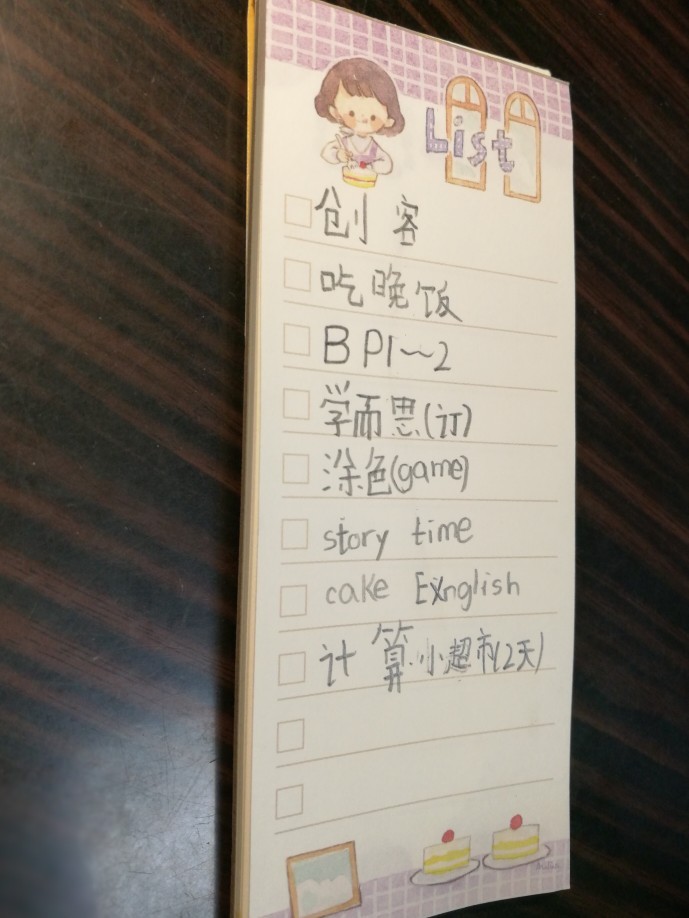 List
创客
吃晚饭
BP1~2
学而思(订)
涂色(game)
story time
cake Exnglish
计算小超市(2天)